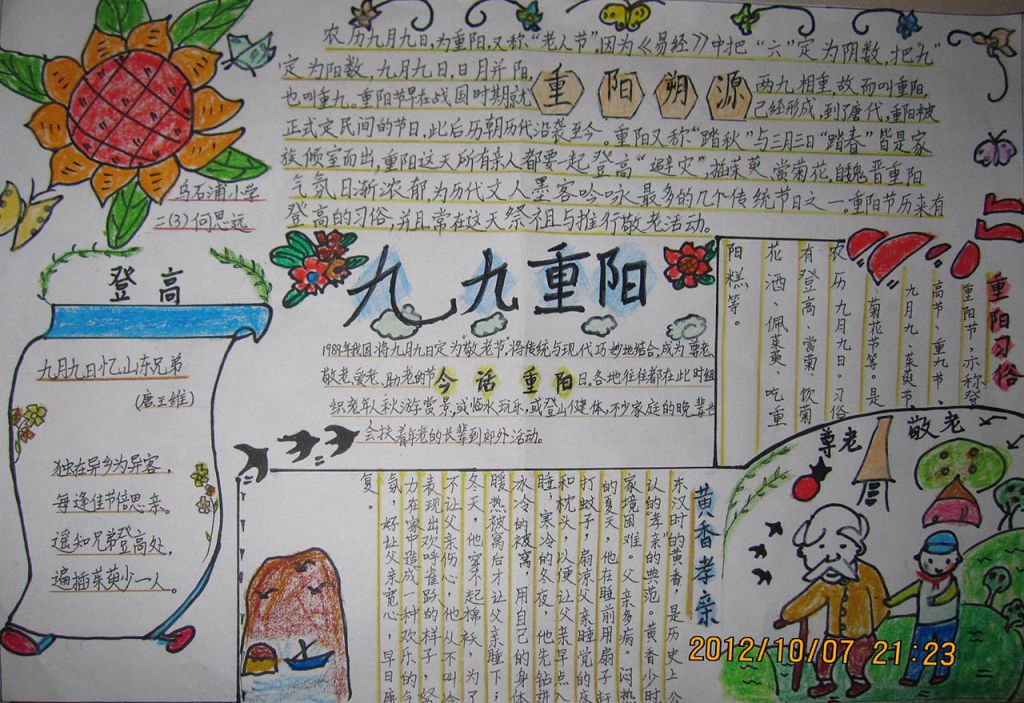 农历九月九日,为重阳,又称“老人节”因为《易经》中把“六”定为阴数,把“九”
定为阳数,九月九日,日月并阳,两九相重,故而叫重阳,
也叫重九。重阳节早在战国时期就已经形成,到了唐代,重阳被
重阳朔源
正式定民间的节日,此后历朝历代沿袭至今。重阳又称“踏秋”与三月三日“踏春”皆是家
族倾室而出,重阳这天所有亲人都要一起登高“避灾”,插茱萸、赏菊花,自魏晋重阳
气氛日渐浓郁,为历代文人墨客吟咏最多的几个传统节日之一。重阳节历来有
登高的习俗,并且常在这天祭祖与推行敬老活动。
乌石浦小学
二(3)何思远
登高
九月九日忆山东兄弟
(唐王维)
独在异乡为异客,
每逢佳节倍思亲。
遥知兄弟登高处,
遍插茱萸少一人。
九九重阳
1989年我国将九月九日定为敬老节,将传统与现代巧妙地结合,成为尊老、
敬老、爱老、助老的节日,各地往往都在此时组
今话重阳
织老年人秋游赏景,或临水玩乐,或登山健体,不少家庭的晚辈也
会扶着年老的长辈到郊外活动。
重阳习俗
重阳节、亦称登
高节、重九节、
九月九、茱萸节、
菊花节等。是
农历九月九日。习俗
有登高、赏菊、饮菊
花酒、佩茱萸、吃重
阳糕等。
黄香孝亲
东汉时的黄香,是历史上公
认的“孝亲”的典范。黄香少时
家境困难。父亲多病。闷热
的夏天,他在睡前用扇子赶
打蚊子,扇凉父亲睡觉的床
和枕头,以便让父亲早点入
睡,寒冷的冬夜,他先钻进
冰冷的被窝,用自己的身体
暖热被窝后才让父亲睡下;
冬天,他穿不起棉袄,为了
不让父亲伤心,他从不叫冷
表现出欢呼雀跃的样子,努
力在家中造成一种欢乐的气
氛,好让父亲宽心,早日康
复。
尊老敬老
2012/10/07 21:23